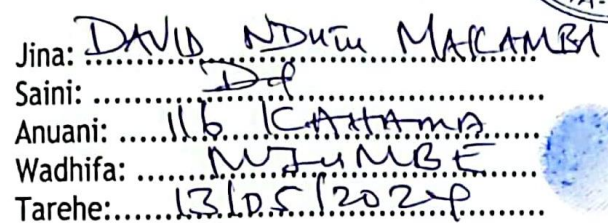 Jina: DAVID NDUTU MAKAMBI
Saini:
Anuani: 116 KAHAMA
Wadhifa: MJUMBE
Tarehe: 13/05/2024